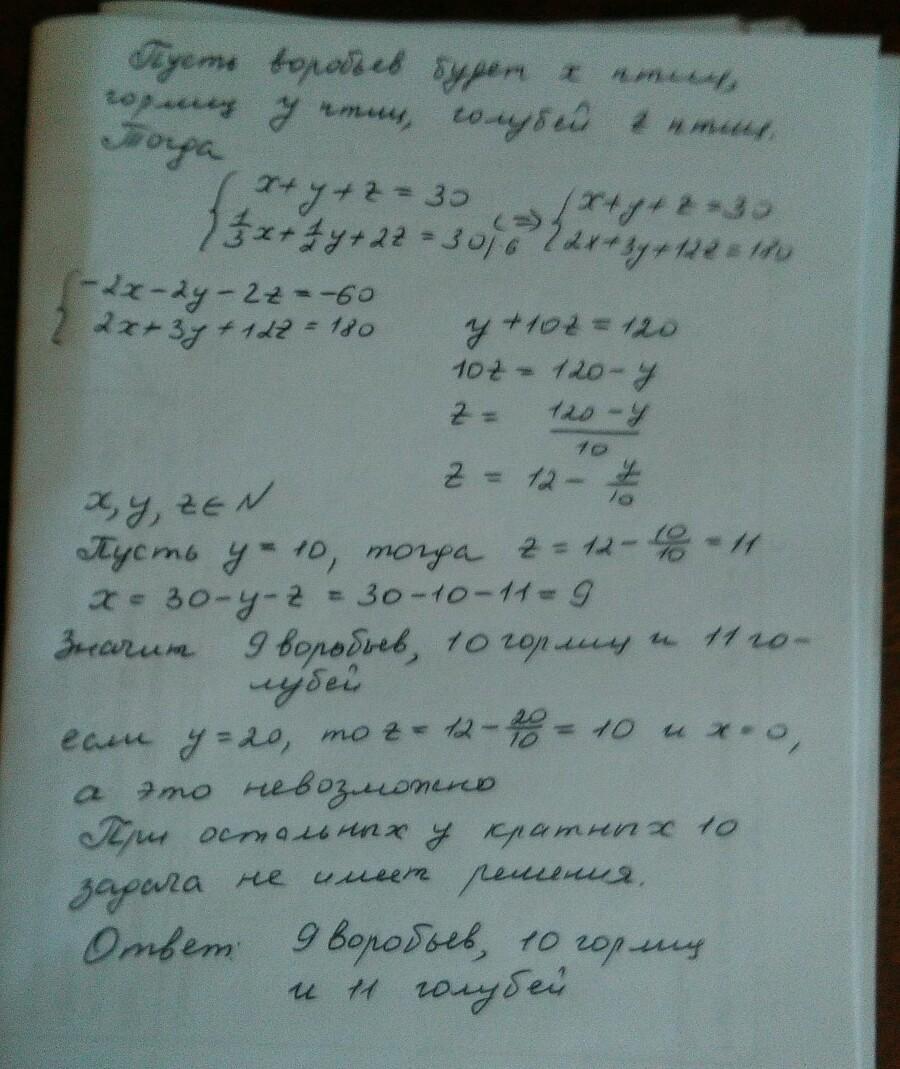 Пусть воробьев будет x птиц,
горлиц y птиц, голубей z птиц.
Тогда
{ x + y + z = 30
{ 1/3 x + 1/2 y + 2z = 30 |·6 <=> { x + y + z = 30
{ 2x + 3y + 12z = 180
{ -2x - 2y - 2z = -60
{ 2x + 3y + 12z = 180
y + 10z = 120
10z = 120 - y
z = (120 - y)/10
z = 12 - y/10
x, y, z ∈ N
Пусть y = 10, тогда z = 12 - 10/10 = 11
x = 30 - y - z = 30 - 10 - 11 = 9
Значит 9 воробьев, 10 горлиц и 11 го-
лубей
если y = 20, то z = 12 - 20/10 = 10 и x = 0,
а это невозможно
При остальных y кратных 10
задача не имеет решения.
Ответ: 9 воробьев, 10 горлиц
и 11 голубей